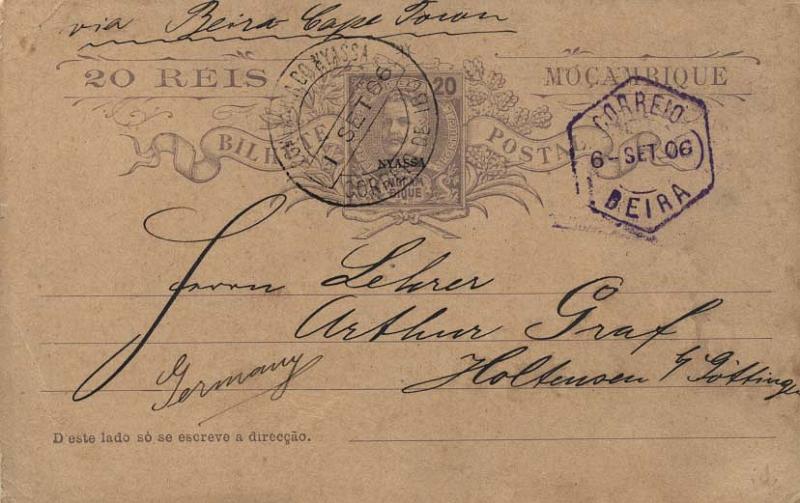 via Beira Cape Town
20 REIS MOÇAMBIQUE
20
BILHETE POSTAL
NYASSA
MOÇAMBIQUE
NYASSA
1 SET 06
CORREIO DE
CORREIO
6-SET 06
BEIRA
Herrn Lehrer
Arthur Graf
Holtensen b/ Göttingen
Germany
D'este lado só se escreve a direcção.